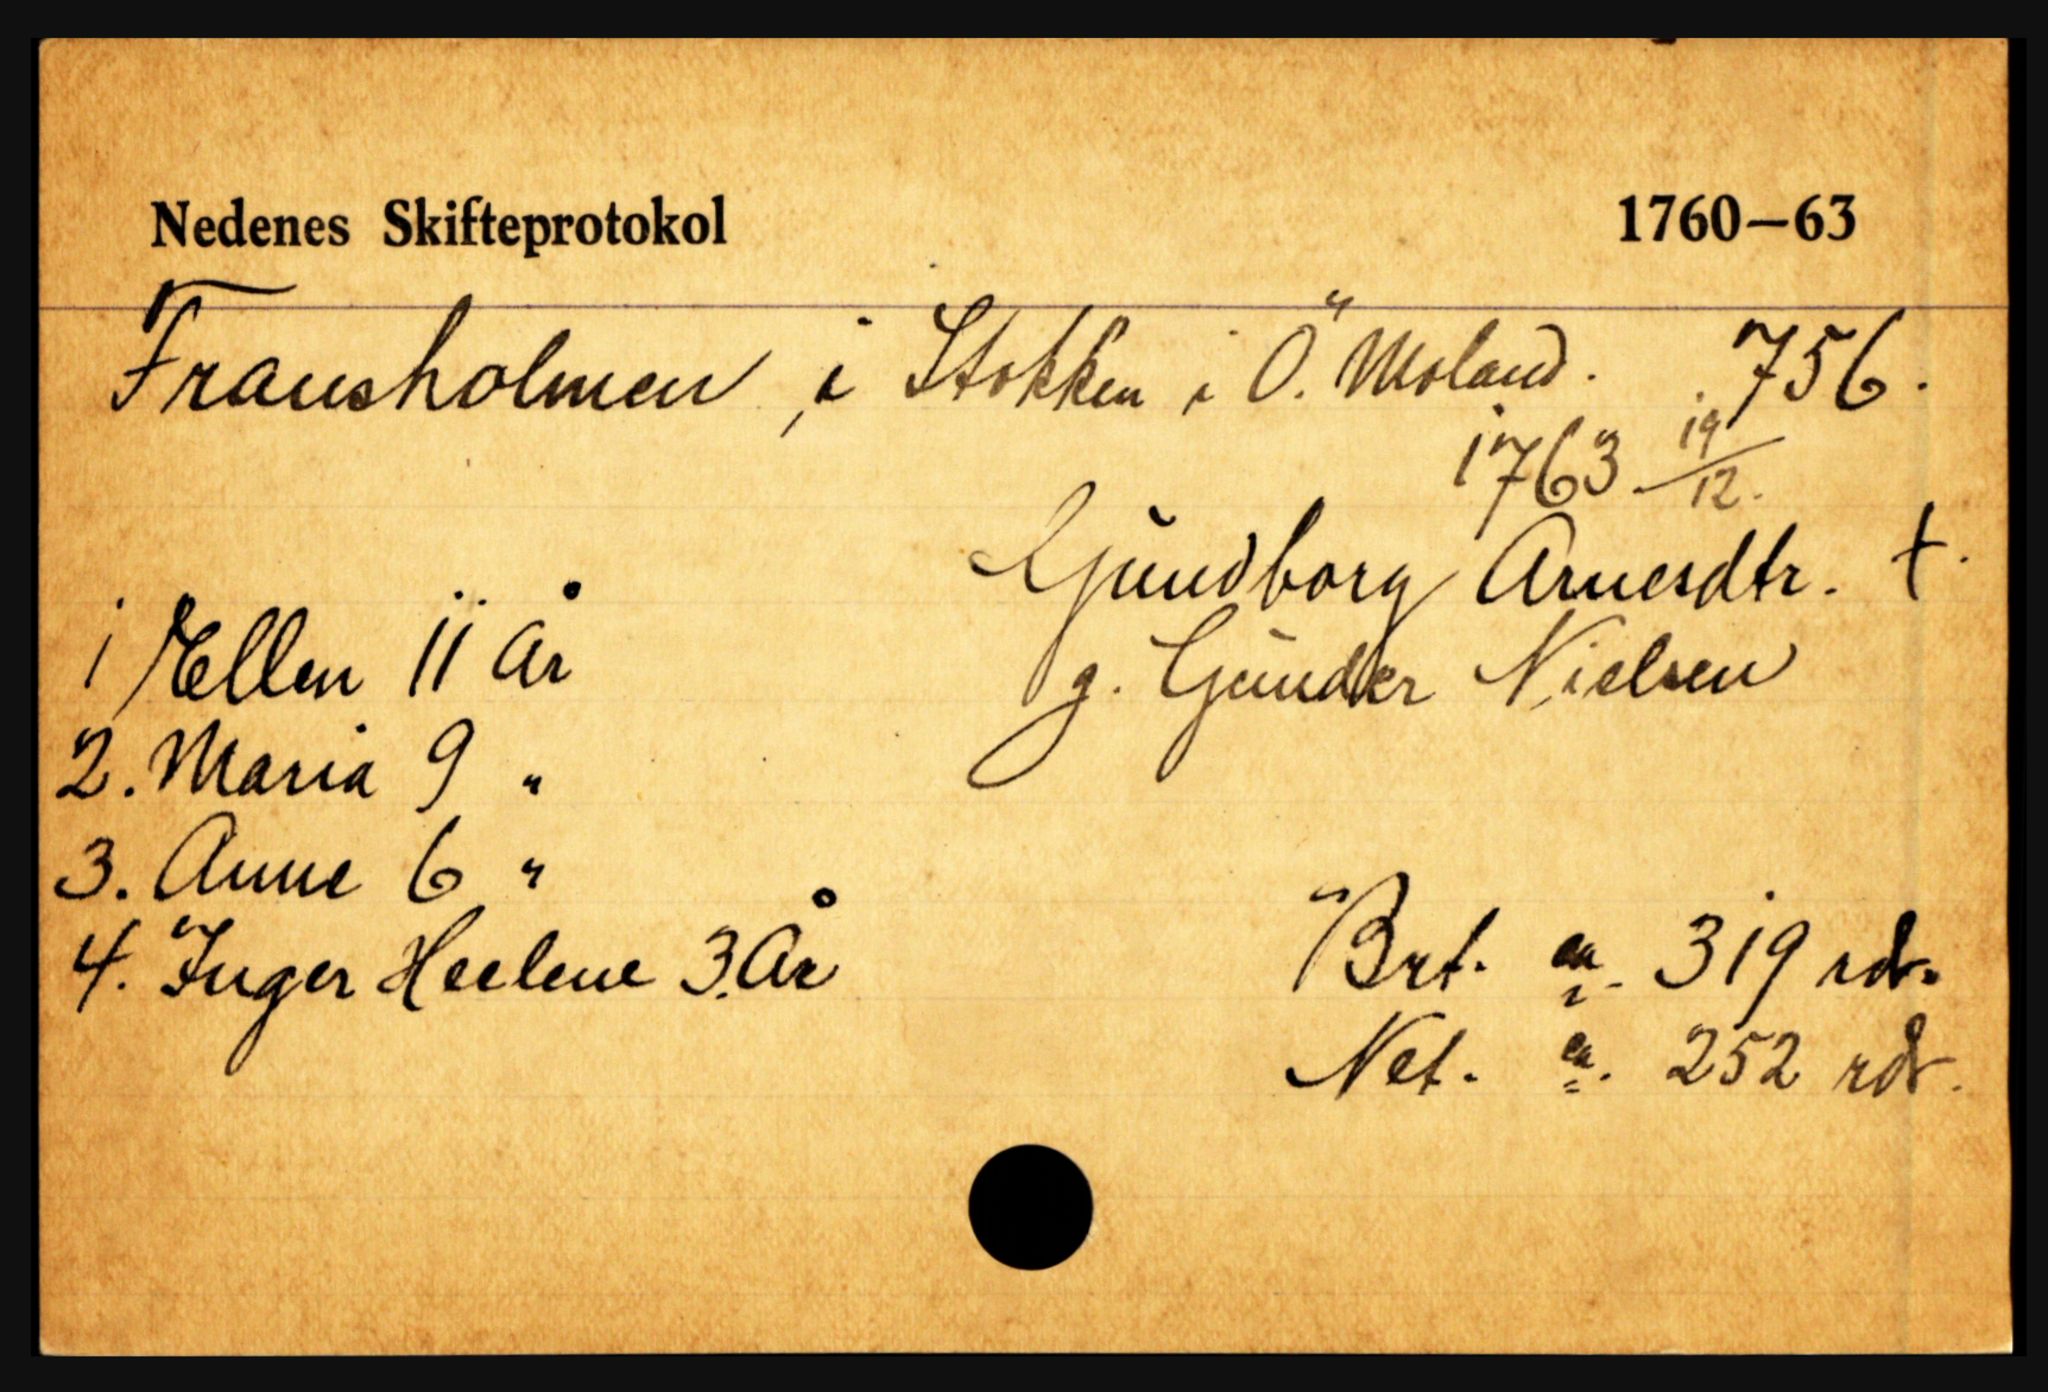 Nedenes Skifteprotokol 1760–63
Fransholmen, i Stokken i Ö. Moland. 756.
1763 19/12.
Gundborg Arnesdtr. †.
g. Gunder Nielsen
1 Ellen 11 År
2. Maria 9 "
3. Anne 6 "
4. Inger Heelene 3. År
Brt. ca. 319 rdr.
Net. ca. 252 rdr.